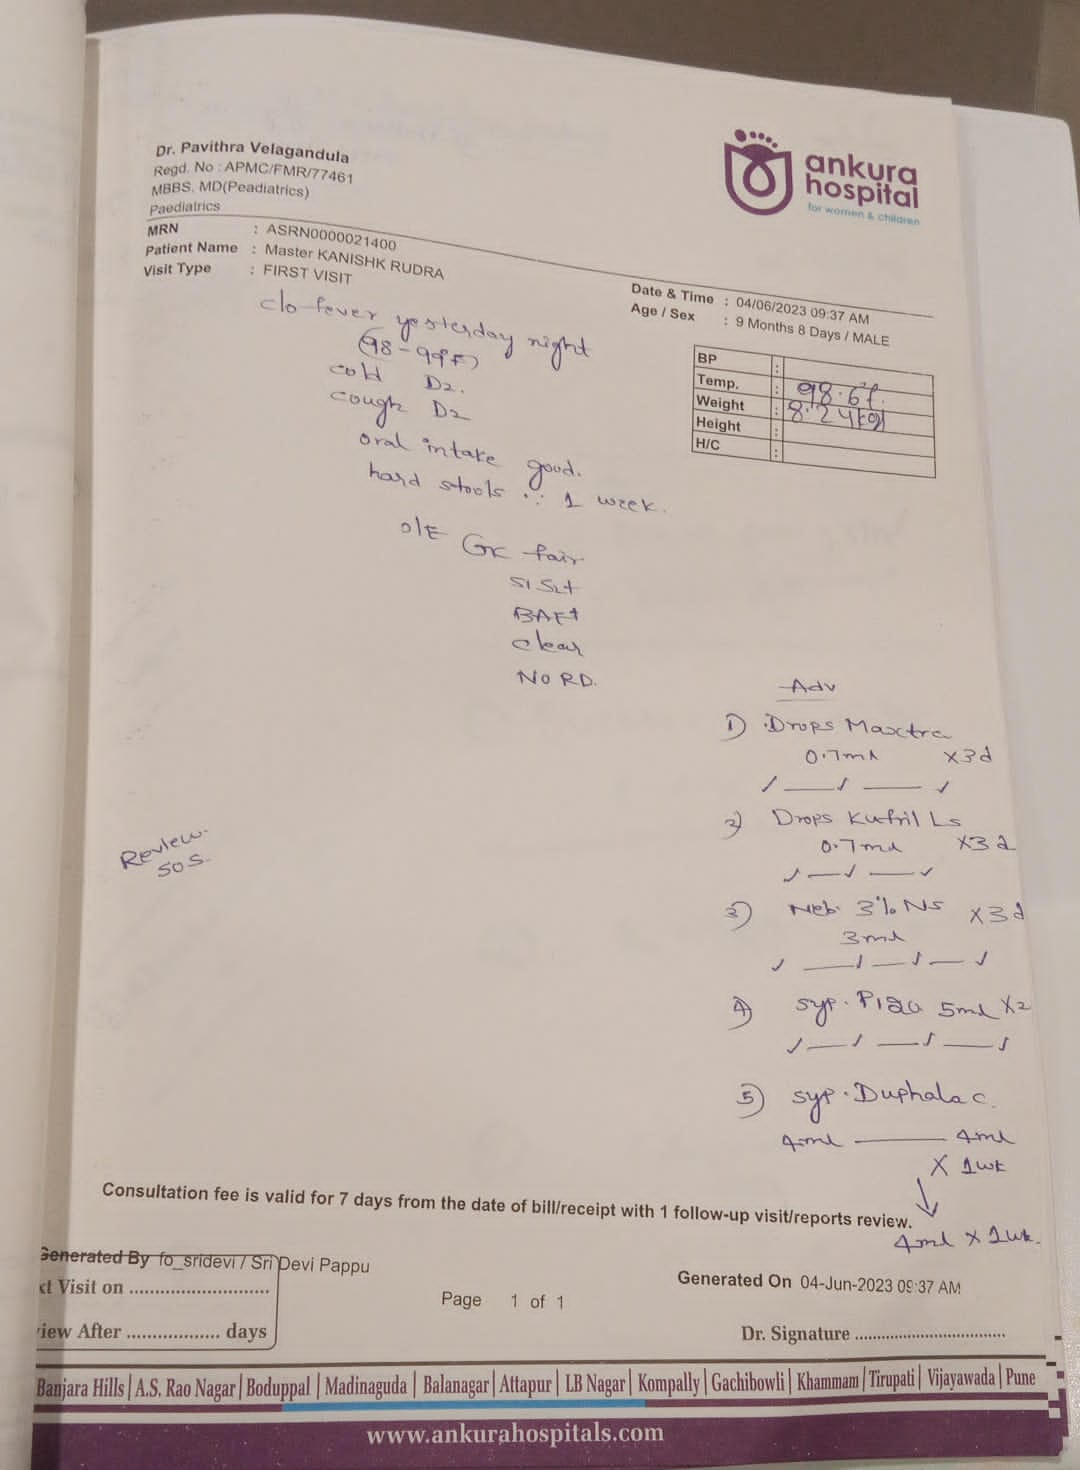 Dr. Pavithra Velagandula
Regd. No : APMC/FMR/77461
MBBS, MD(Peadiatrics)
Paediatrics
ankura
hospital
for women & children
MRN : ASRN0000021400
Patient Name : Master KANISHK RUDRA
Visit Type : FIRST VISIT
Date & Time : 04/06/2023 09:37 AM
Age / Sex : 9 Months 8 Days / MALE
BP :
Temp. : 98.6f.
Weight : 8.24kg
Height :
H/C :
c/o fever yesterday night
(98-99°F)
cold D2.
cough D2
oral intake good.
hard stools ∵ 1 week.
o/E GC fair
S1S2+
BAE+
clear
NO RD.
Adv
1) Drops Maxtra
0.7ml x3d
2) Drops Kufril Ls
0.7ml x3d
3) Neb. 3% NS x3d
3ml
4) syp. 5ml x2
5) syp. Duphalac.
4ml 4ml
x 1wk
↓
4ml x 1wk.
Review
SOS.
Consultation fee is valid for 7 days from the date of bill/receipt with 1 follow-up visit/reports review.
Generated By fo_sridevi / Sri Devi Pappu
xt Visit on ............................
Generated On 04-Jun-2023 09:37 AM
Page 1 of 1
iew After .................. days
Dr. Signature ..................................
Banjara Hills | A.S. Rao Nagar | Boduppal | Madinaguda | Balanagar | Attapur | LB Nagar | Kompally | Gachibowli | Khammam | Tirupati | Vijayawada | Pune
www.ankurahospitals.com